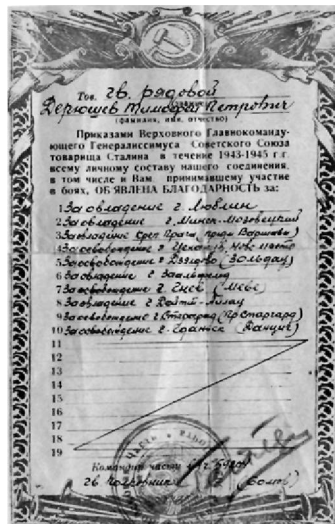 Тов. гв. рядовой
Дерюшев Тимофей Петрович
(фамилия, имя, отчество)
Приказами Верховного Главнокоманду-
ющего Генералиссимуса Советского Союза
товарища Сталина в течение 1943-1945 г.г.
всему личному составу нашего соединения,
в том числе и Вам принимавшему участие
в боях, ОБЪЯВЛЕНА БЛАГОДАРНОСТЬ за:
1 За овладение г. Люблин
2 За овладение г. Минск-Мозовецкий
3 За овладение креп Прага, (предм Варшавы)
4 За освобождение г Цеханов, Нове Място
5 За освобождение г. Дзядово (Зольдау)
6 За овладение г Заальфельд
7 За освобождение г Гнев (Меве)
8 За овладение г. Дойт-Айлау
9 За освобождение г Старгард (Пр Старгард)
10 За освобождение г. Гданьск (Данциг)
11
12
13
14
15
16
17
18
19
Командир части
гв полковник